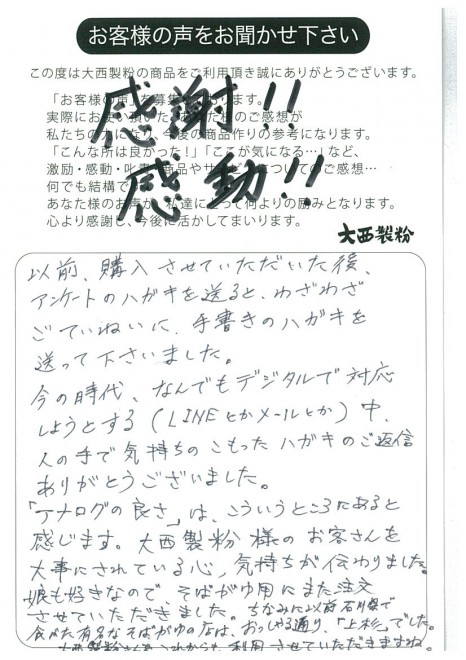 お客様の声をお聞かせ下さい
この度は大西製粉の商品をご利用頂き誠にありがとうございます。
「お客様の声」を募集しております。
実際にお使い頂いたあなた様のご感想が
私たちの力になり、今後の商品作りの参考になります。
「こんな所は良かった!」「ここが気になる…」など、
激励・感動・叱責、商品やサービスについてのご感想…
何でも結構です。
あなた様のお声が、私達にとって何よりの励みとなります。
心より感謝し、今後に活かしてまいります。
感謝!!
感動!!
大西製粉
以前、購入させていただいた後、
アンケートのハガキを送ると、わざわざ
ごていねいに、手書きのハガキを
送って下さいました。
今の時代、なんでもデジタルで対応
しようとする(LINEとかメールとか)中、
人の手で気持ちのこもったハガキのご返信
ありがとうございました。
「アナログの良さ」は、こういうところにあると
感じます。大西製粉様のお客さんを
大事にされている心、気持ちが伝わりました。
娘も好きなので、そばがゆ用にまた注文
させていただきました。ちなみに以前石川県で
食べた有名なそばがゆのなは、おっしゃる通り、「上杉」でした。
大西製粉さんをこれからも利用させていただきますね。